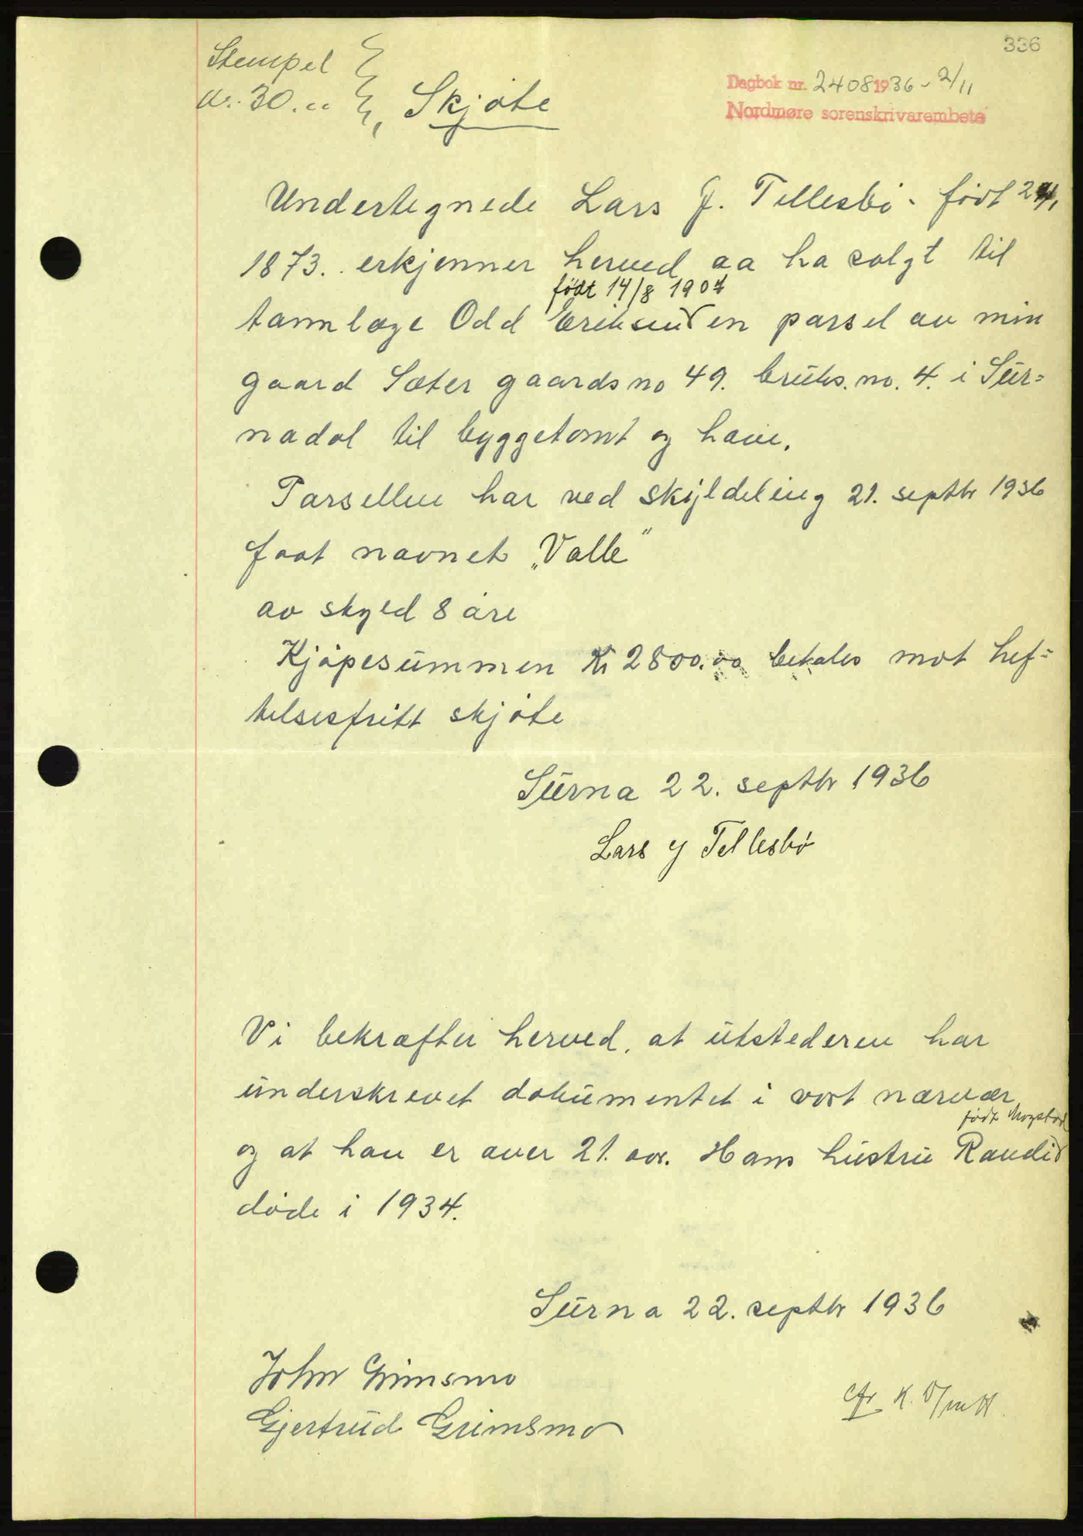 336
Stempel
kr. 30.00
Skjøte
Dagbok nr. 2408 1936 - 2/11
Nordmøre sorenskrivarembete
Undertegnede Lars J. Tellesbø - født
1873. erkjenner herved aa ha solgt til
født 14/8 1907
tannlæge Odd Eriksen en parsel av min
gaard Sæter gaards no 49. bruks. no. 4. i Sur=
nadal til byggetomt og have.
Parsellen har ved skyldeling 21. septbr 1936
faat navnet „Valle”
av skyld 8 øre
Kjøpesummen Kr 2800.00 betales mot hef=
telsesfritt skjøte
Surna 22. septbr 1936
Lars J Tellesbø
Vi bekræfter herved, at utstederen har
underskrevet dokumentet i vort nærvær,
født Mogstad
og at han er over 21. aar. Hans hustru Randi
døde i 1934.
Surna 22. septbr 1936
John Grimsmo
Gjertrud Grimsmo